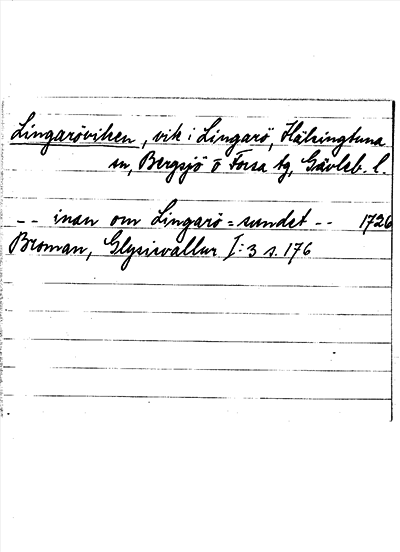 Lingaröviken, vik i Lingarö, Hälsingtuna
sn, Bergsjö o Forsa tg, Gävleb. l.
-- inan om Lingarö=sundet -- 1726
Broman, Glysisvallur I:3 s. 176